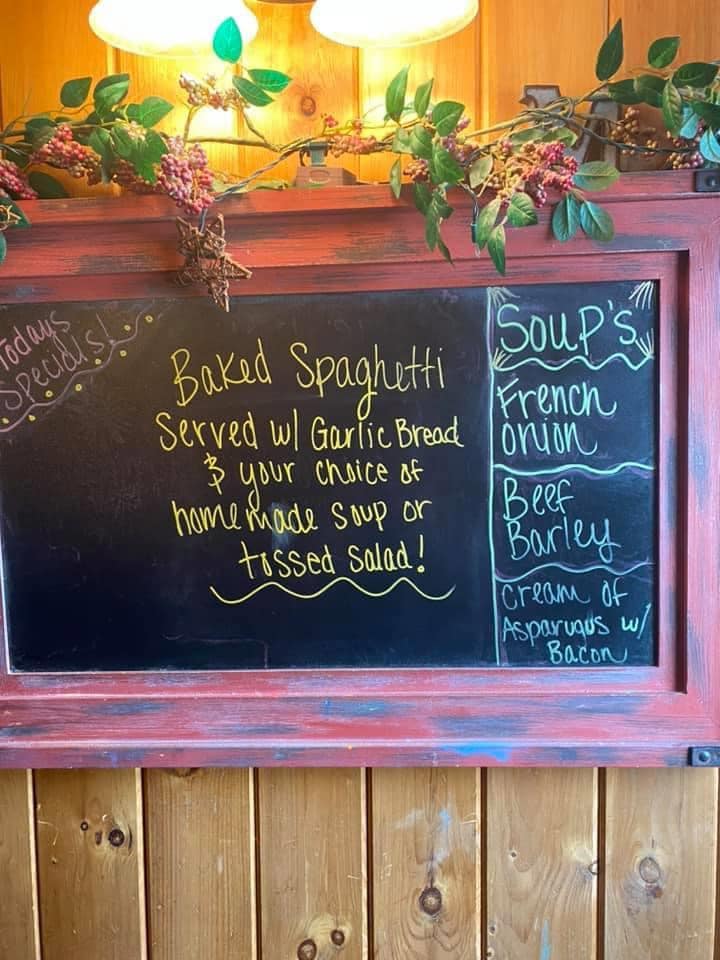 Todays
Specials!
Baked Spaghetti
Served w/ Garlic Bread
& your choice of
homemade soup or
tossed salad!
Soup's
French
onion
Beef
Barley
Cream of
Asparugus w/
Bacon